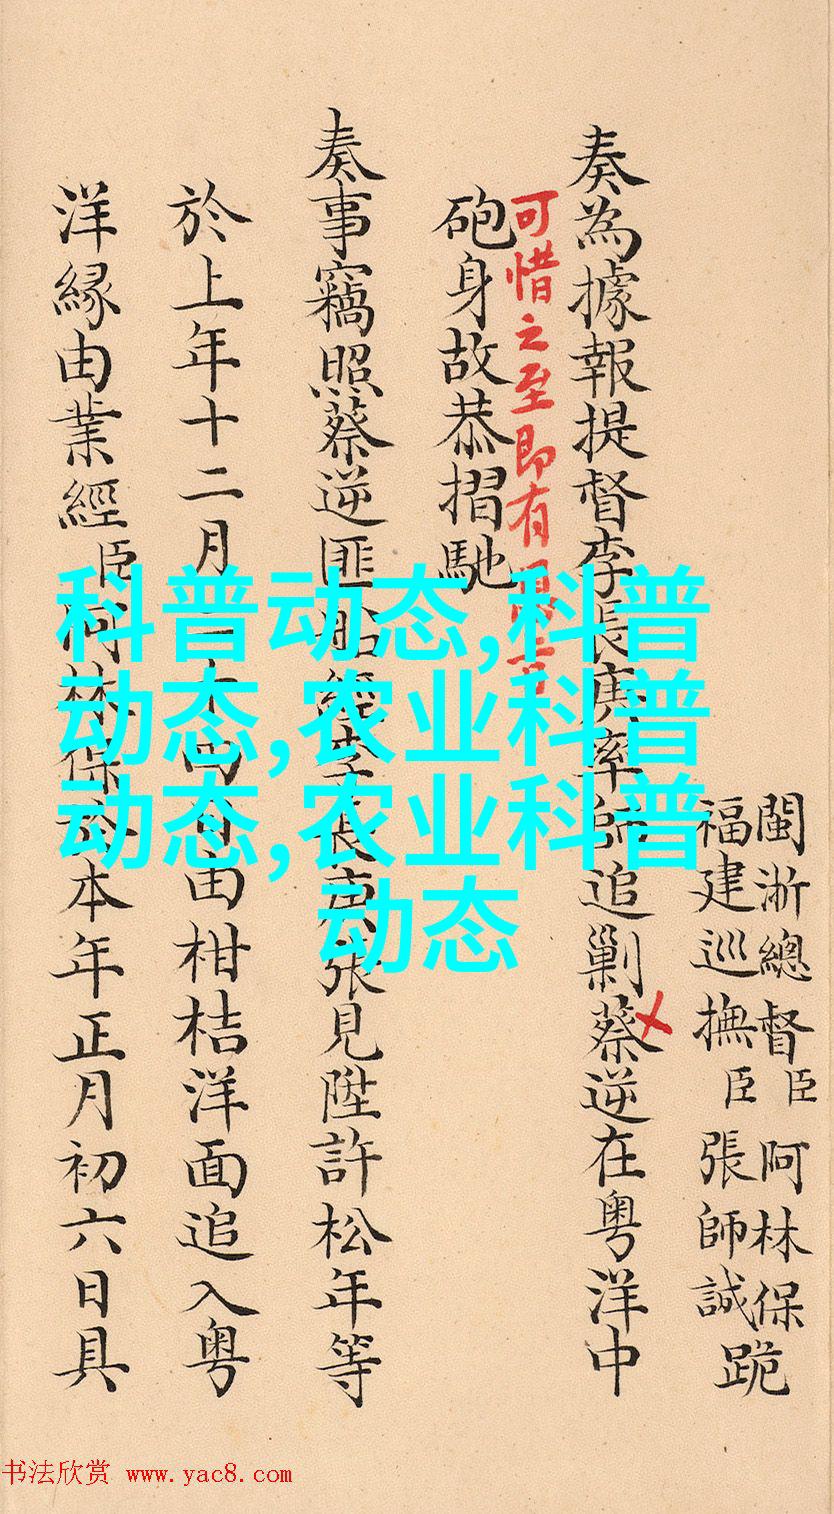 閩浙總督臣阿林保
福建巡撫臣張師誠
跪
奏為據報提督李長庚率師追剿蔡逆在粤洋中
可惜之至即有
砲身故恭摺馳
奏事竊照蔡逆匪船經李長庚張見陞許松年等
於上年十二月十四日由柑桔洋面追入粤
洋縁由業經臣阿林保於本年正月初六日具
科普动态,科普
动态,农业科普
动态,农业科普
动态
书法欣赏 www.yac8.com